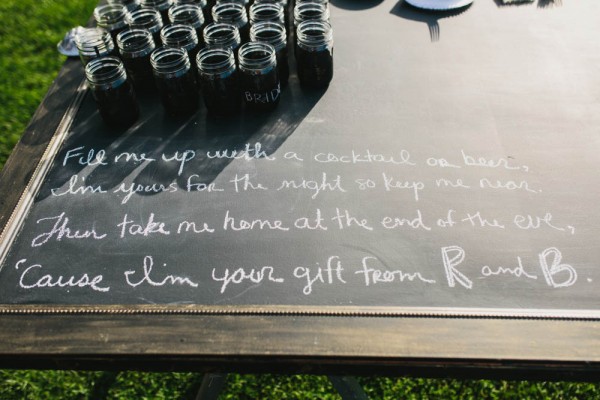 BRAD
Fill me up with a cocktail or beer,
I'm yours for the night so keep me near.
Then take me home at the end of the eve,
'Cause I'm your gift from R and B.